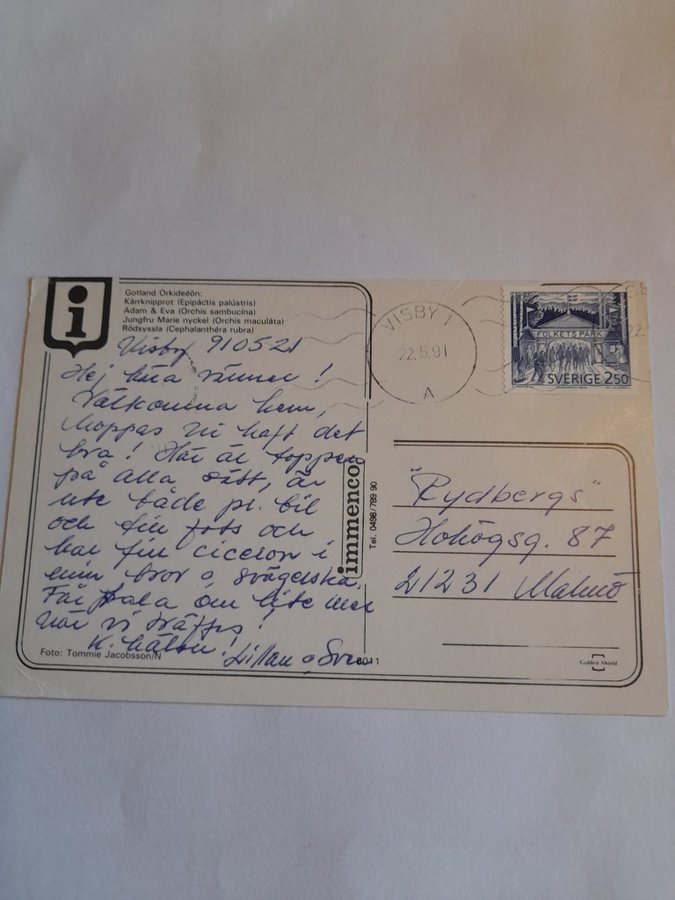 Gotland Orkideéön:
Kärrknipprot (Epipáctis palústris)
Adam & Eva (Orchis sambucína)
Jungfru Marie nyckel (Orchis maculáta)
Rödsyssla (Cephalanthéra rubra)
i
Visby 910521
Hej kära vänner!
Välkomna hem,
hoppas ni haft det
bra! Här är toppen
på alla sätt, är
ute både pr. bil
och till fots och
har fin ciceron i
min bror o. svägerska.
Får tala om lite mer
när vi träffas!
K. hälsn!
Foto: Tommie Jacobsson/N
8011
immenco
Tel. 0498/789 90
VISBY 1
22.5.91
A
FOLKETS PARK
SVERIGE 250
"Rydbergs"
Hohögsg. 87
21231 Malmö
Golden Shield